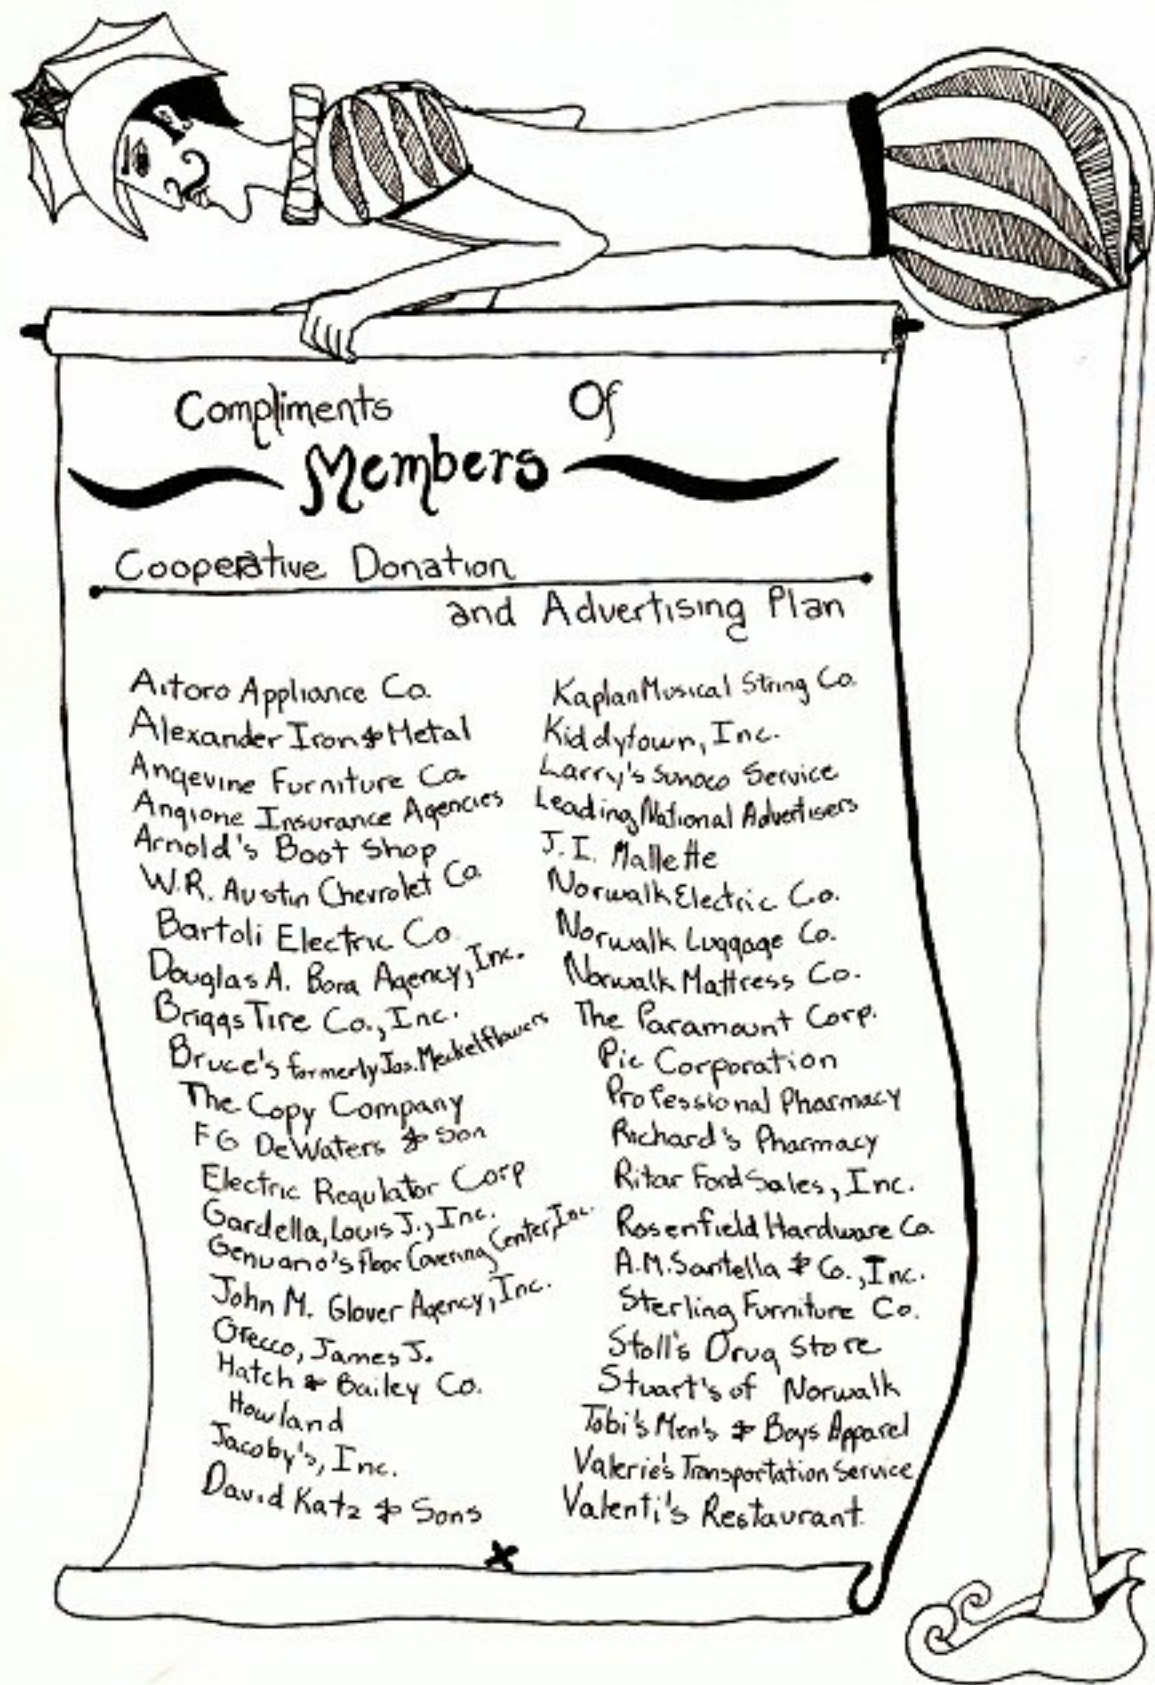 Compliments Of
Members
Cooperative Donation
and Advertising Plan
Aitoro Appliance Co.
Alexander Iron & Metal
Angevine Furniture Co.
Angione Insurance Agencies
Arnold's Boot Shop
W.R. Austin Chevrolet Co.
Bartoli Electric Co.
Douglas A. Bora Agency, Inc.
Briggs Tire Co., Inc.
Bruce's formerly Jos. Meckel flowers
The Copy Company
FG DeWaters & Son
Electric Regulator Corp
Gardella, Louis J., Inc.
Genuano's Floor Covering Center, Inc.
John M. Glover Agency, Inc.
Grecco, James J.
Hatch & Bailey Co.
Howland
Jacoby's, Inc.
David Katz & Sons
Kaplan Musical String Co.
Kiddytown, Inc.
Larry's Sunoco Service
Leading National Advertisers
J.I. Mallette
Norwalk Electric Co.
Norwalk Luggage Co.
Norwalk Mattress Co.
The Paramount Corp.
Pic Corporation
Professional Pharmacy
Richard's Pharmacy
Ritar Ford Sales, Inc.
Rosenfield Hardware Co.
A.M. Santella & Co., Inc.
Sterling Furniture Co.
Stoll's Drug Store
Stuart's of Norwalk
Tobi's Men's & Boys Apparel
Valerie's Transportation Service
Valenti's Restaurant